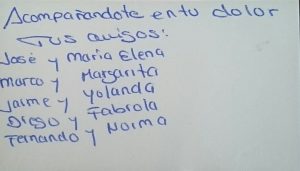 Acompañandote en tu dolor
Tus amigos:
José y Maria Elena
Marco y Margarita
Jaime y Yolanda
Diego y Fabrola
Fernando y Norma